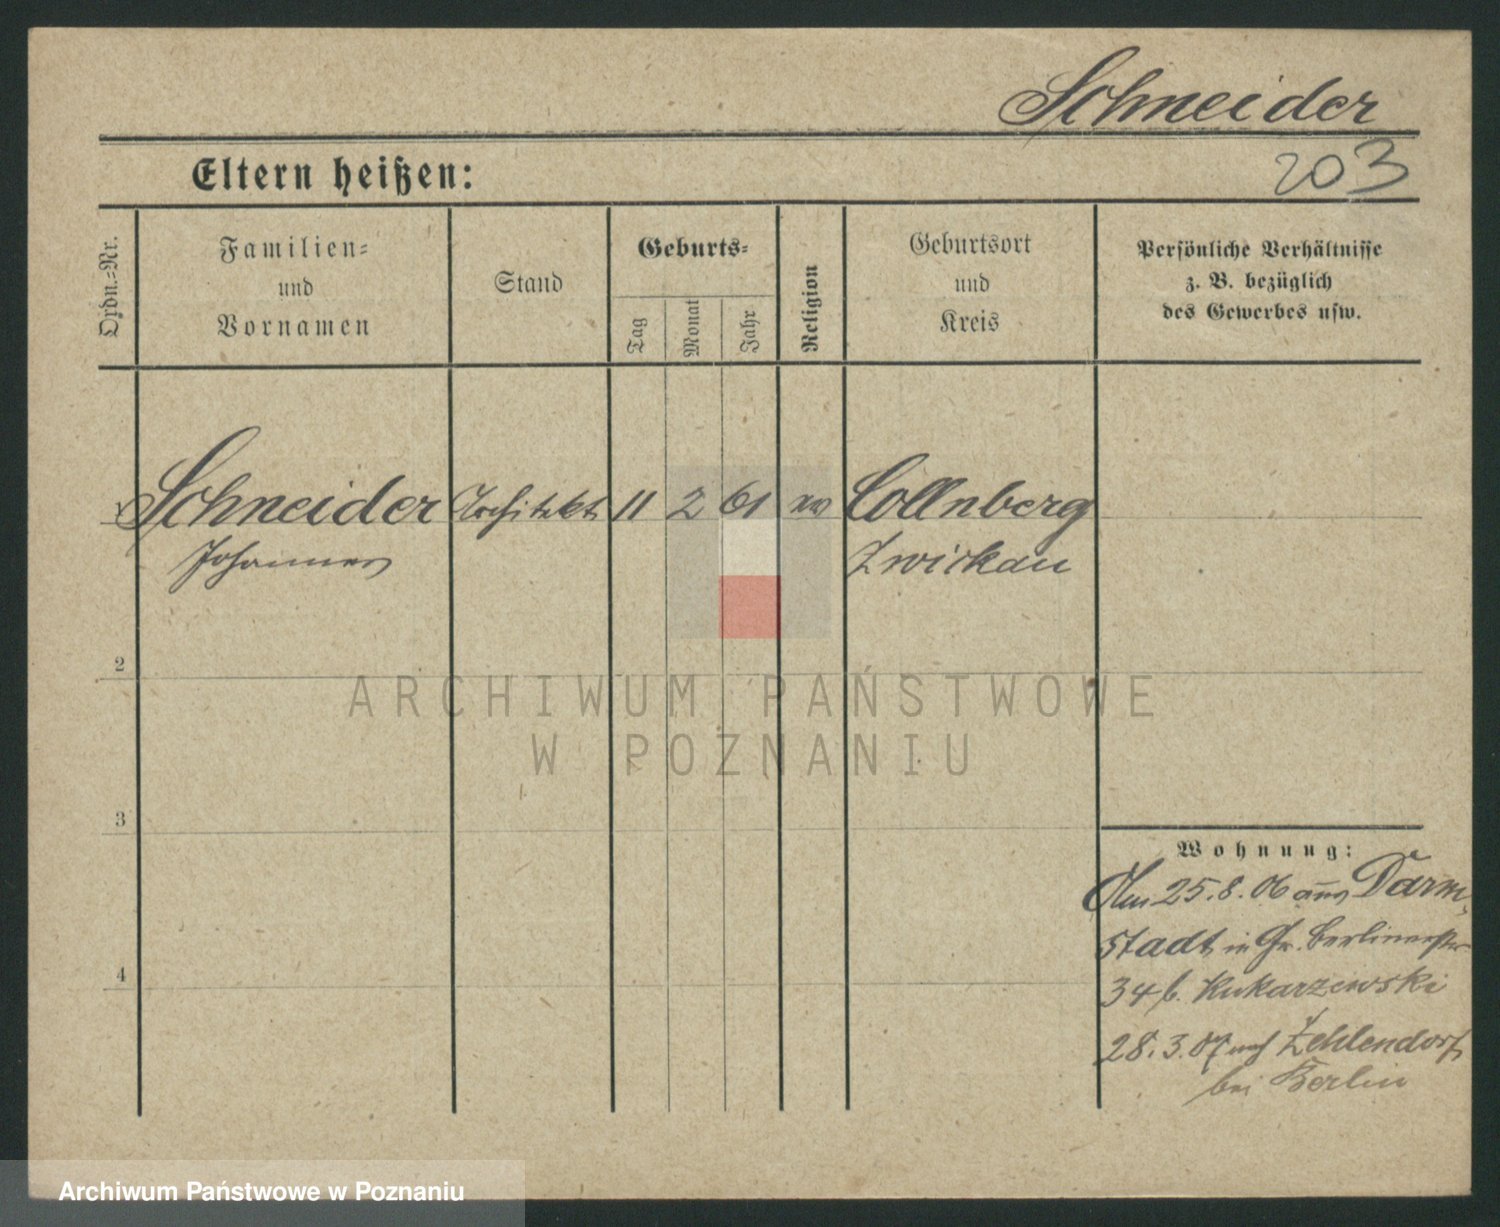 Schneider
203
Eltern heißen:
Ordn.-Nr.
Familien-
und
Vornamen
Stand
Geburts-
Tag
Monat
Jahr
Religion
Geburtsort
und
Kreis
Persönliche Verhältnisse
z. B. bezüglich
des Gewerbes usw.
1 Schneider Architekt 11 2 61 ev Collnberg
Johannes Zwickau
2
ARCHIWUM PAŃSTWOWE
W POZNANIU
3
Wohnung:
Am 25.8.06 aus Darm-
stadt in Gr. Berlinerstr
34 b. Kukarzewski
4
28.3.07 nach Zehlendorf
bei Berlin
Archiwum Państwowe w Poznaniu